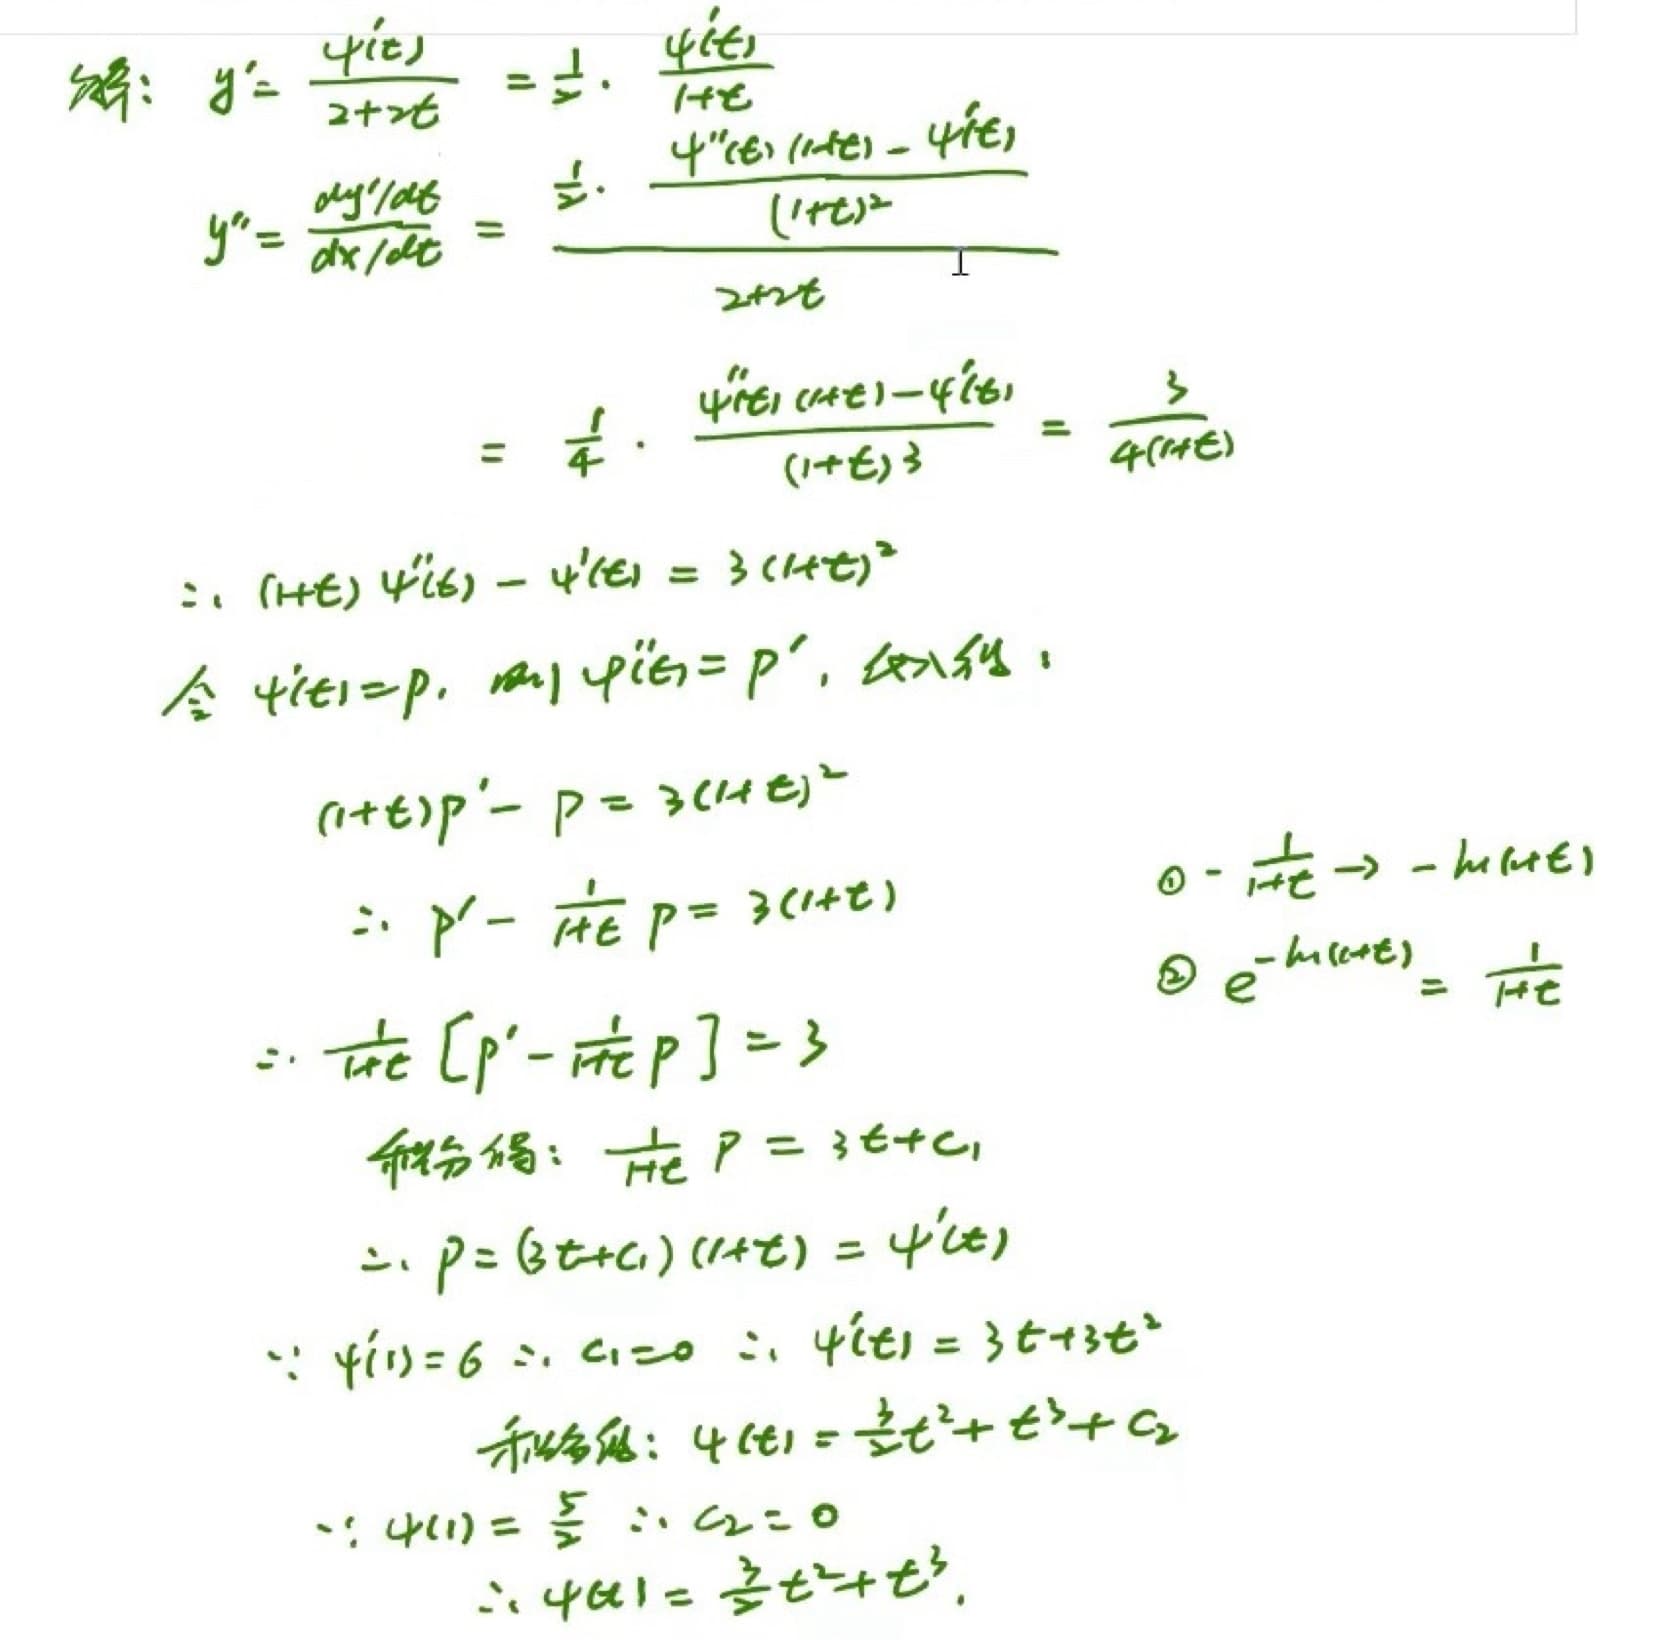 解: y' = ψ'(t)/(2+2t) = 1/2 · ψ'(t)/(1+t)
y'' = (dy'/dt)/(dx/dt) = (1/2 · (ψ''(t)(1+t) - ψ'(t))/(1+t)²)/(2+2t)
= 1/4 · (ψ''(t)(1+t) - ψ'(t))/(1+t)³ = 3/(4(1+t))
∴ (1+t)ψ''(t) - ψ'(t) = 3(1+t)²
令 ψ'(t) = p, 则 ψ''(t) = p', 代入得:
(1+t)p' - p = 3(1+t)²
① - 1/(1+t) → - ln(1+t)
∴ p' - 1/(1+t) p = 3(1+t)
② e^(-ln(1+t)) = 1/(1+t)
∴ 1/(1+t) [p' - 1/(1+t) p] = 3
积分得: 1/(1+t) p = 3t + C₁
∴ p = (3t+C₁)(1+t) = ψ'(t)
∵ ψ'(1) = 6 ∴ C₁ = 0 ∴ ψ'(t) = 3t + 3t²
积分得: ψ(t) = 3/2 t² + t³ + C₂
∵ ψ(1) = 5/2 ∴ C₂ = 0
∴ ψ(t) = 3/2 t² + t³.